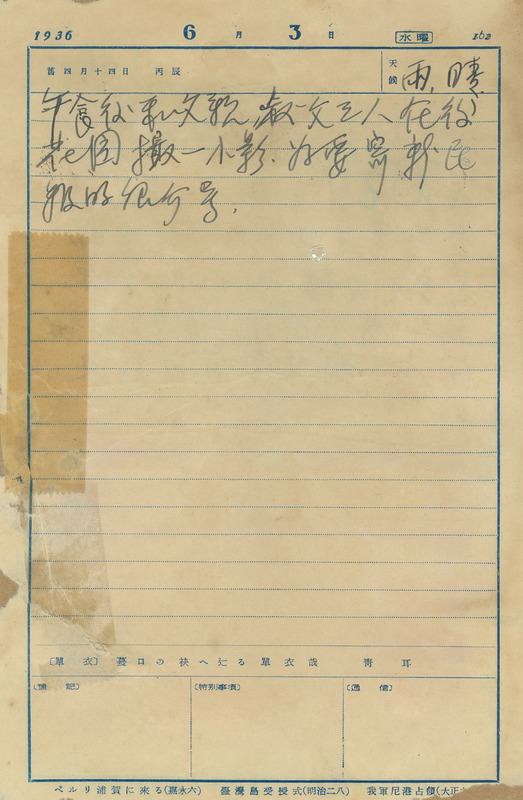 1936 6月3日 水曜 162
舊四月十四日 丙辰
天候 雨, 晴
午食後和文 淑文三人在後
花園撮一小影. 為要寄新民
報的 号.
〔單衣〕 蔓口の袂へ辷る單衣哉 靑耳
〔備記〕 〔特別事項〕 〔通信〕
ペルリ浦賀に来る(嘉永六) 臺灣島受授式(明治二八) 我軍尼港占領(大正